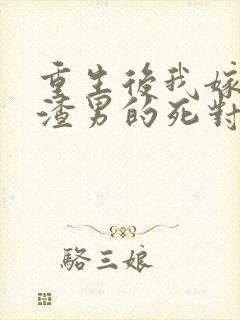 重生後我嫁
渣男的死對
駱三娘